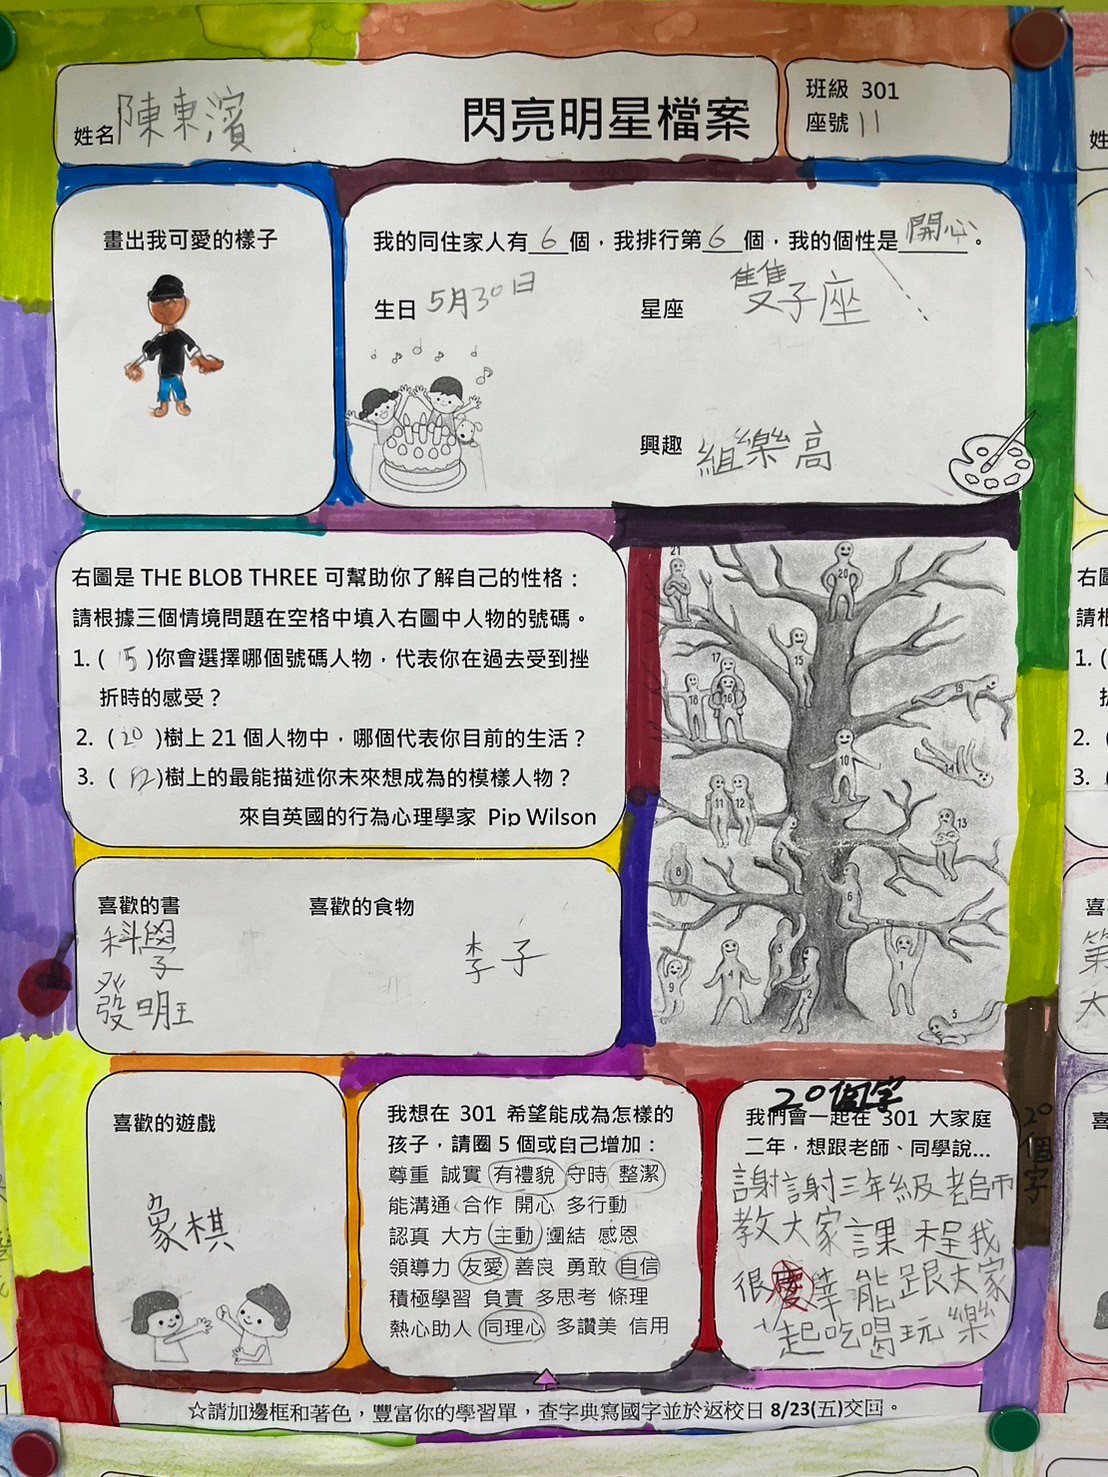 姓名 陳東濱
閃亮明星檔案
班級 301
座號 11
畫出我可愛的樣子
我的同住家人有 6 個，我排行第 6 個，我的個性是 開心。
生日 5月30日
星座 雙子座
興趣 組樂高
右圖是 THE BLOB THREE 可幫助你了解自己的性格：
請根據三個情境問題在空格中填入右圖中人物的號碼。
1. ( 15 )你會選擇哪個號碼人物，代表你在過去受到挫
折時的感受？
2. ( 20 )樹上 21 個人物中，哪個代表你目前的生活？
3. ( 12 )樹上的最能描述你未來想成為的模樣人物？
來自英國的行為心理學家 Pip Wilson
21
20
15
17
18
16
19
10
14
11
12
13
8
6
3
4
2
1
9
5
喜歡的書
科學
發明王
喜歡的食物
李子
喜歡的遊戲
象棋
我想在 301 希望能成為怎樣的
孩子，請圈 5 個或自己增加：
尊重 誠實 有禮貌 守時 整潔
能溝通 合作 開心 多行動
認真 大方 主動 團結 感恩
領導力 友愛 善良 勇敢 自信
積極學習 負責 多思考 條理
熱心助人 同理心 多讚美 信用
20個字
我們會一起在 301 大家庭
二年，想跟老師、同學說...
謝謝三年級老師
教大家課程我
很慶幸能跟大家
一起吃喝玩樂
20個字
☆請加邊框和著色，豐富你的學習單，查字典寫國字並於返校日 8/23(五)交回。
姓
右圖
請根
1. (
折
2. (
3. (
喜
第
大
喜